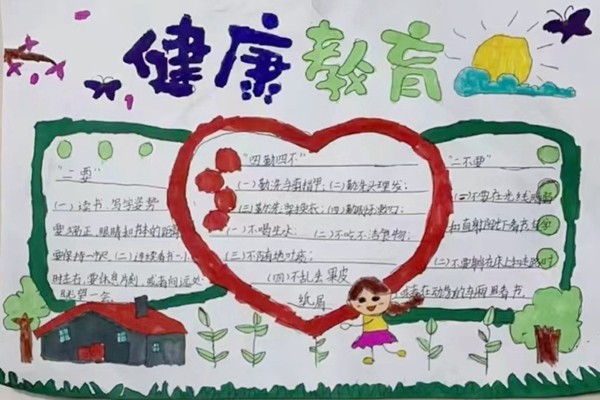 健康教育
"二要"
(一)读书、写字姿势
要端正,眼睛和书本的距离
要保持一尺。(二)连续看书一小
时左右,要休息片刻,或者向远处
眺望一会。
"四勤四不"
(一)勤洗手剪指甲;(二)勤洗头理发;
(三)勤洗澡换衣;(四)勤刷牙漱口;
(一)不喝生水;(二)不吃不洁食物;
(三)不随地吐痰;
(四)不乱丢果皮
纸屑
"二不要"
不要在光线
和直射阳光下看书写字
(二)不要躺在床上和走路时
在动荡的车厢里看书。